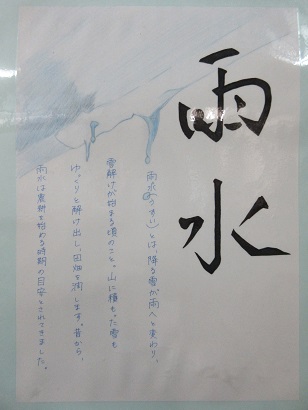 雨水
雨水(うすい)とは、降る雪が雨へと変わり、
雪解けが始まる頃のこと。山に積もった雪も
ゆっくりと解け出し、田畑を潤します。昔から、
雨水は農耕を始める時期の目安とされてきました。